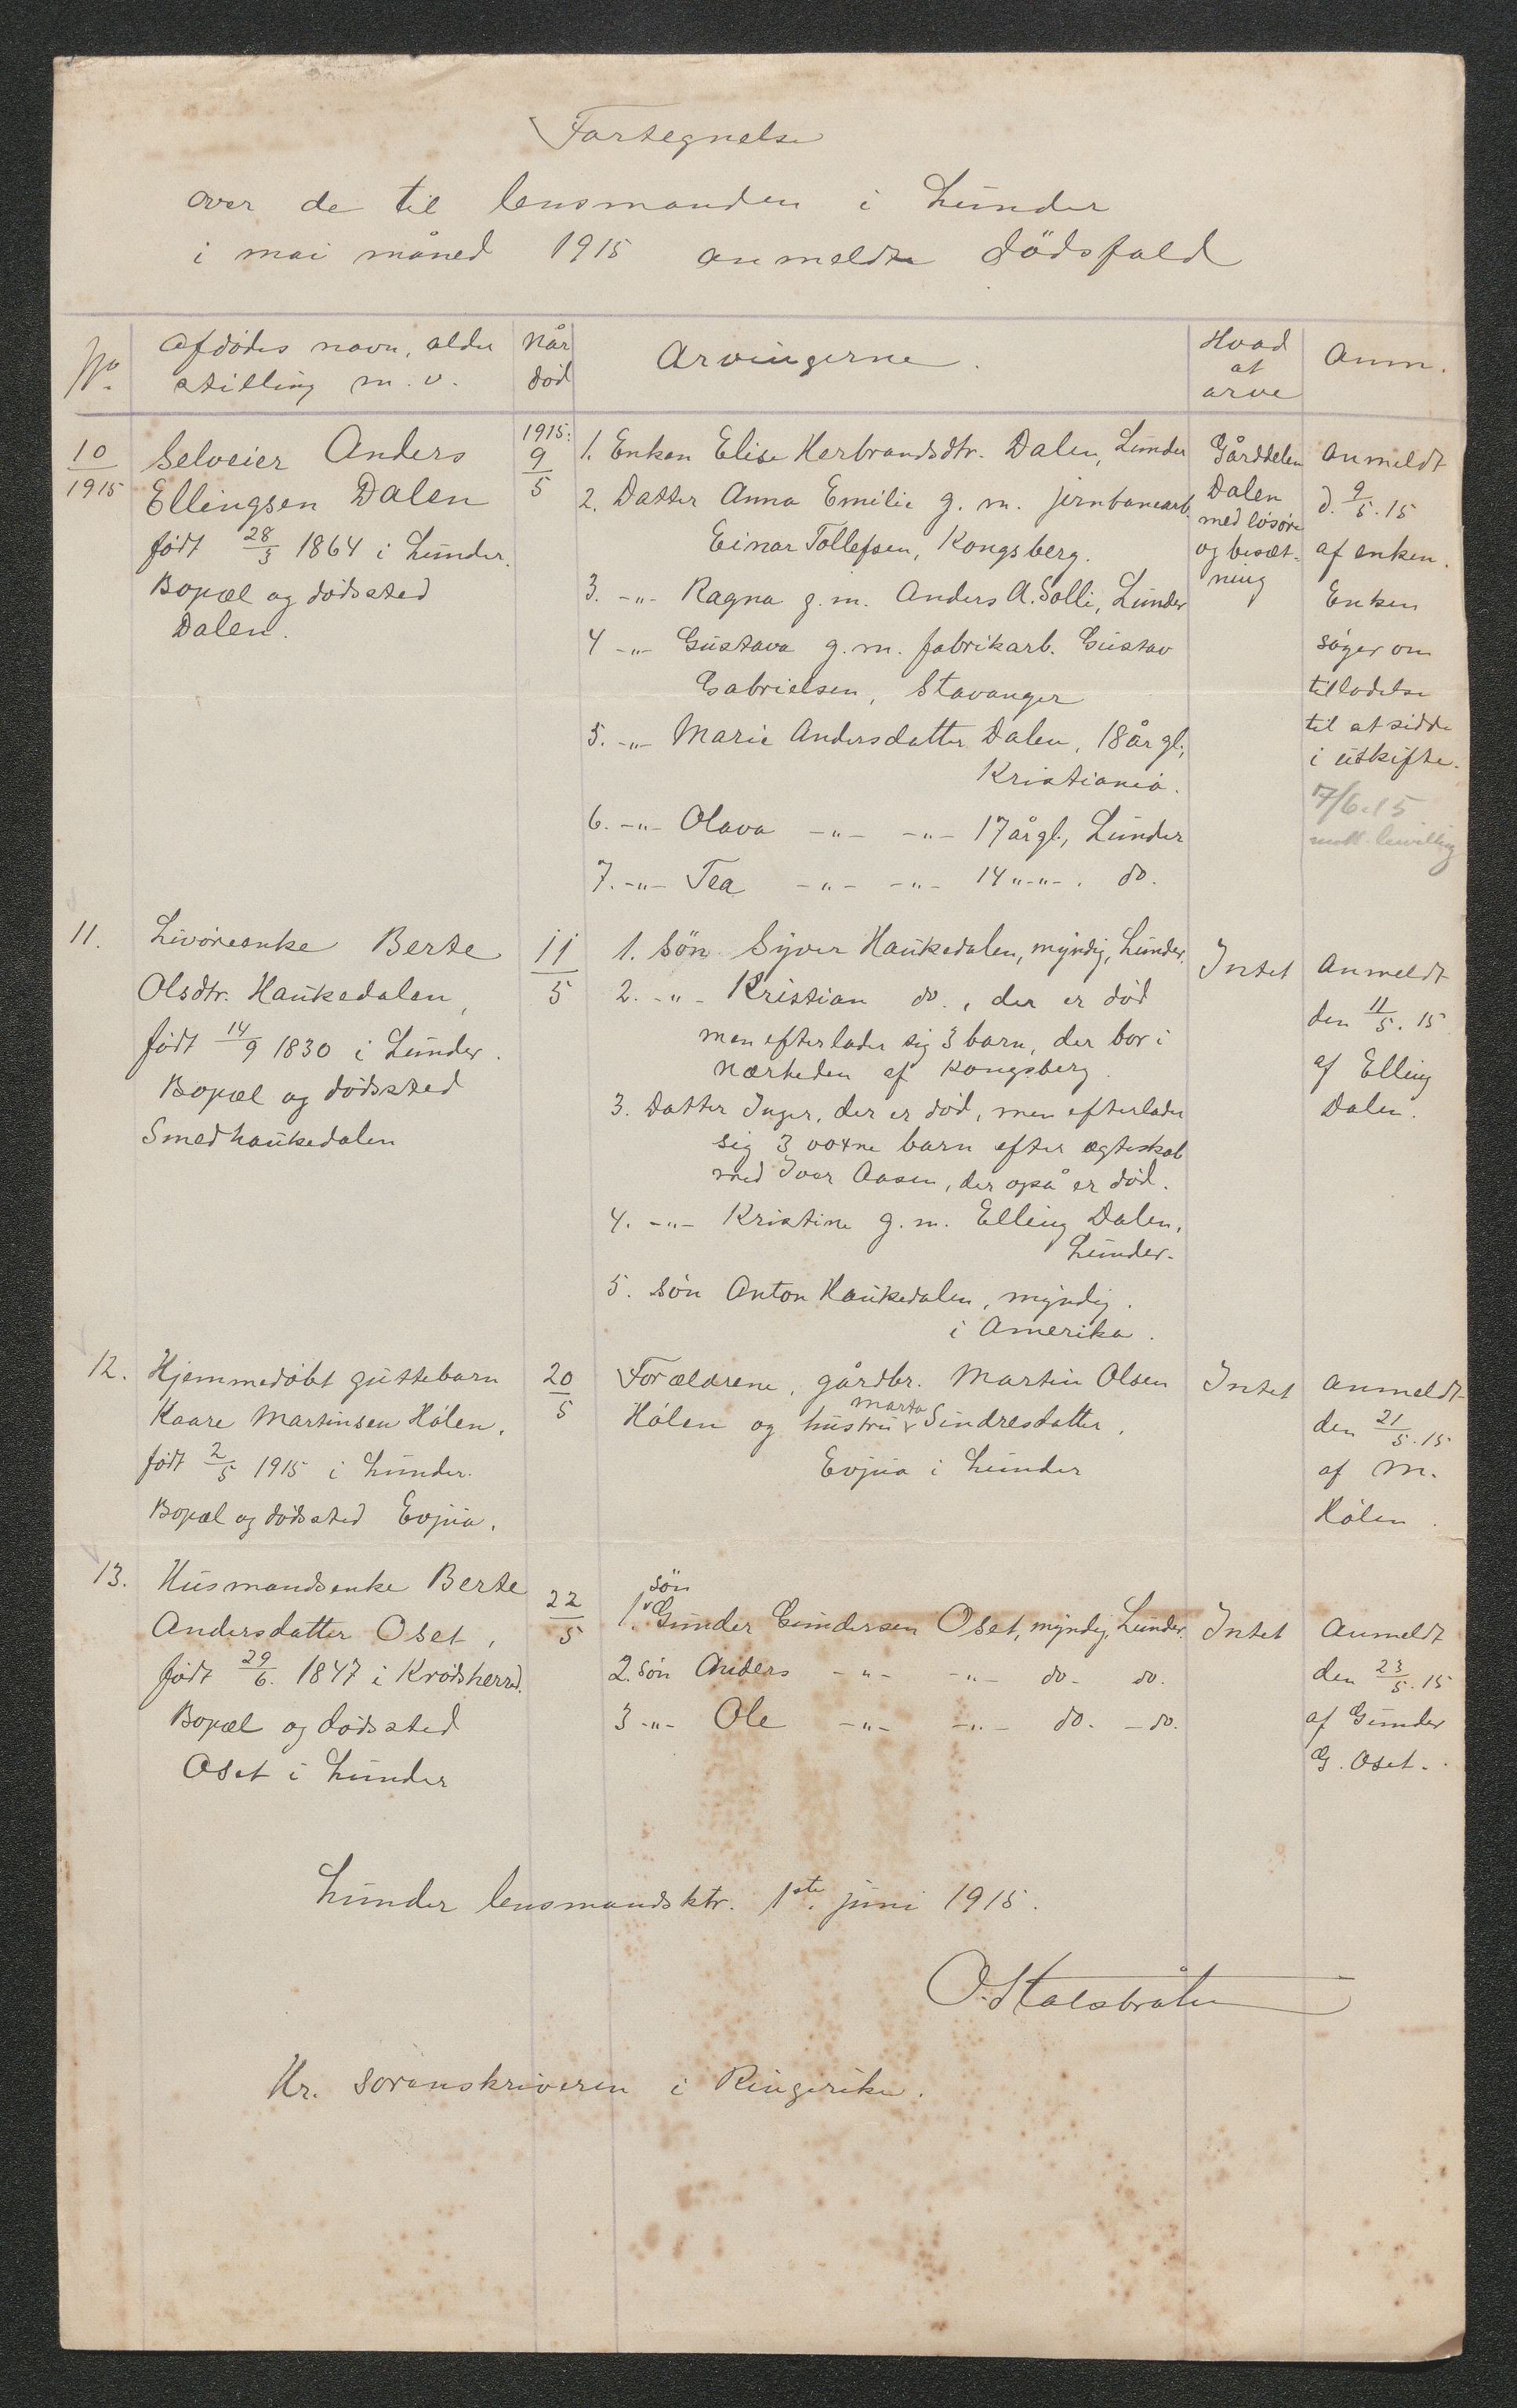 Fortegnelse
over de til lensmanden i Lunder
i mai måned 1915 anmeldte dödsfald
No.
Afdødes navn, alder
stilling m.v.
Når
död
Arvingerne.
Hvad
at
arve
Anm.
10
1915
Selveier Anders
Ellingsen Dalen
født 28/5 1864 i Lunder.
Bopæl og dödssted
Dalen.
1915:
9/5
1. Enken Elise Herbrandsdtr. Dalen, Lunder
2. Datter Anna Emilie g. m. jernbanearb.
Einar Tollefsen, Kongsberg.
3. -"- Ragna g. m. Anders A. Solli, Lunder
4 -"- Gustava g. m. fabrikarb. Gustav
Gabrielsen, Stavanger
5. -"- Marie Andersdatter Dalen, 18 år gl.,
Kristiania.
6. -"- Olava -"- -"- 17 år gl., Lunder
7. -"- Tea -"- -"- 14 "-"-. do.
Gårddelen
Dalen
med løsøre
og besæt-
ning
Anmeldt
d. 9/5. 15
af enken.
Enken
söger om
tilladelse
til at sidde
i uskifte.
7/6.15
11.
Livøreenke Berte
Olsdtr. Haukedalen,
født 14/9 1830 i Lunder.
Bopæl og dödssted
Smedhaukedalen
11/5
1. Sön Syver Haukedalen, myndig, Lunder.
2. -"- Kristian do., der er död
men efterlader sig 3 barn, der bor i
nærheden af Kongsberg.
3. Datter Inger, der er död, men efterlader
sig 3 voxne barn efter ægteskab
med Iver Aasen, der også er död.
4. -"- Kristine g. m. Elling Dalen,
Lunder.
5. Sön Anton Haukedalen, myndig.
i Amerika.
Intet
Anmeldt
den 11/5. 15
af Elling
Dalen.
12.
Hjemmedøbt guttebarn
Kaare Martinsen Hólen,
født 2/5 1915 i Lunder.
Bopæl og dödssted Evjua.
20/5
Forældrene, gårdbr. Martin Olsen
Hólen og hustru Marta Sindresdatter,
Evjua i Lunder
Intet
Anmeldt
den 21/5. 15
af M.
Hólen.
13.
Husmandsenke Berte
Andersdatter Oset,
født 29/6. 1847 i Krødsherred.
Bopæl og dödssted
Oset i Lunder
22/5
1. sön Gunder Gundersen Oset, myndig, Lunder.
2. sön Anders -"- -"- do- do.
3 -"- Ole -"- -"- do. -do.
Intet
Anmeldt
den 23/5. 15
af Gunder
G. Oset.
Lunder lensmandsktr. 1ste. juni 1915.
O. Stalsbråten
Hr. Sorenskriveren i Ringerike.